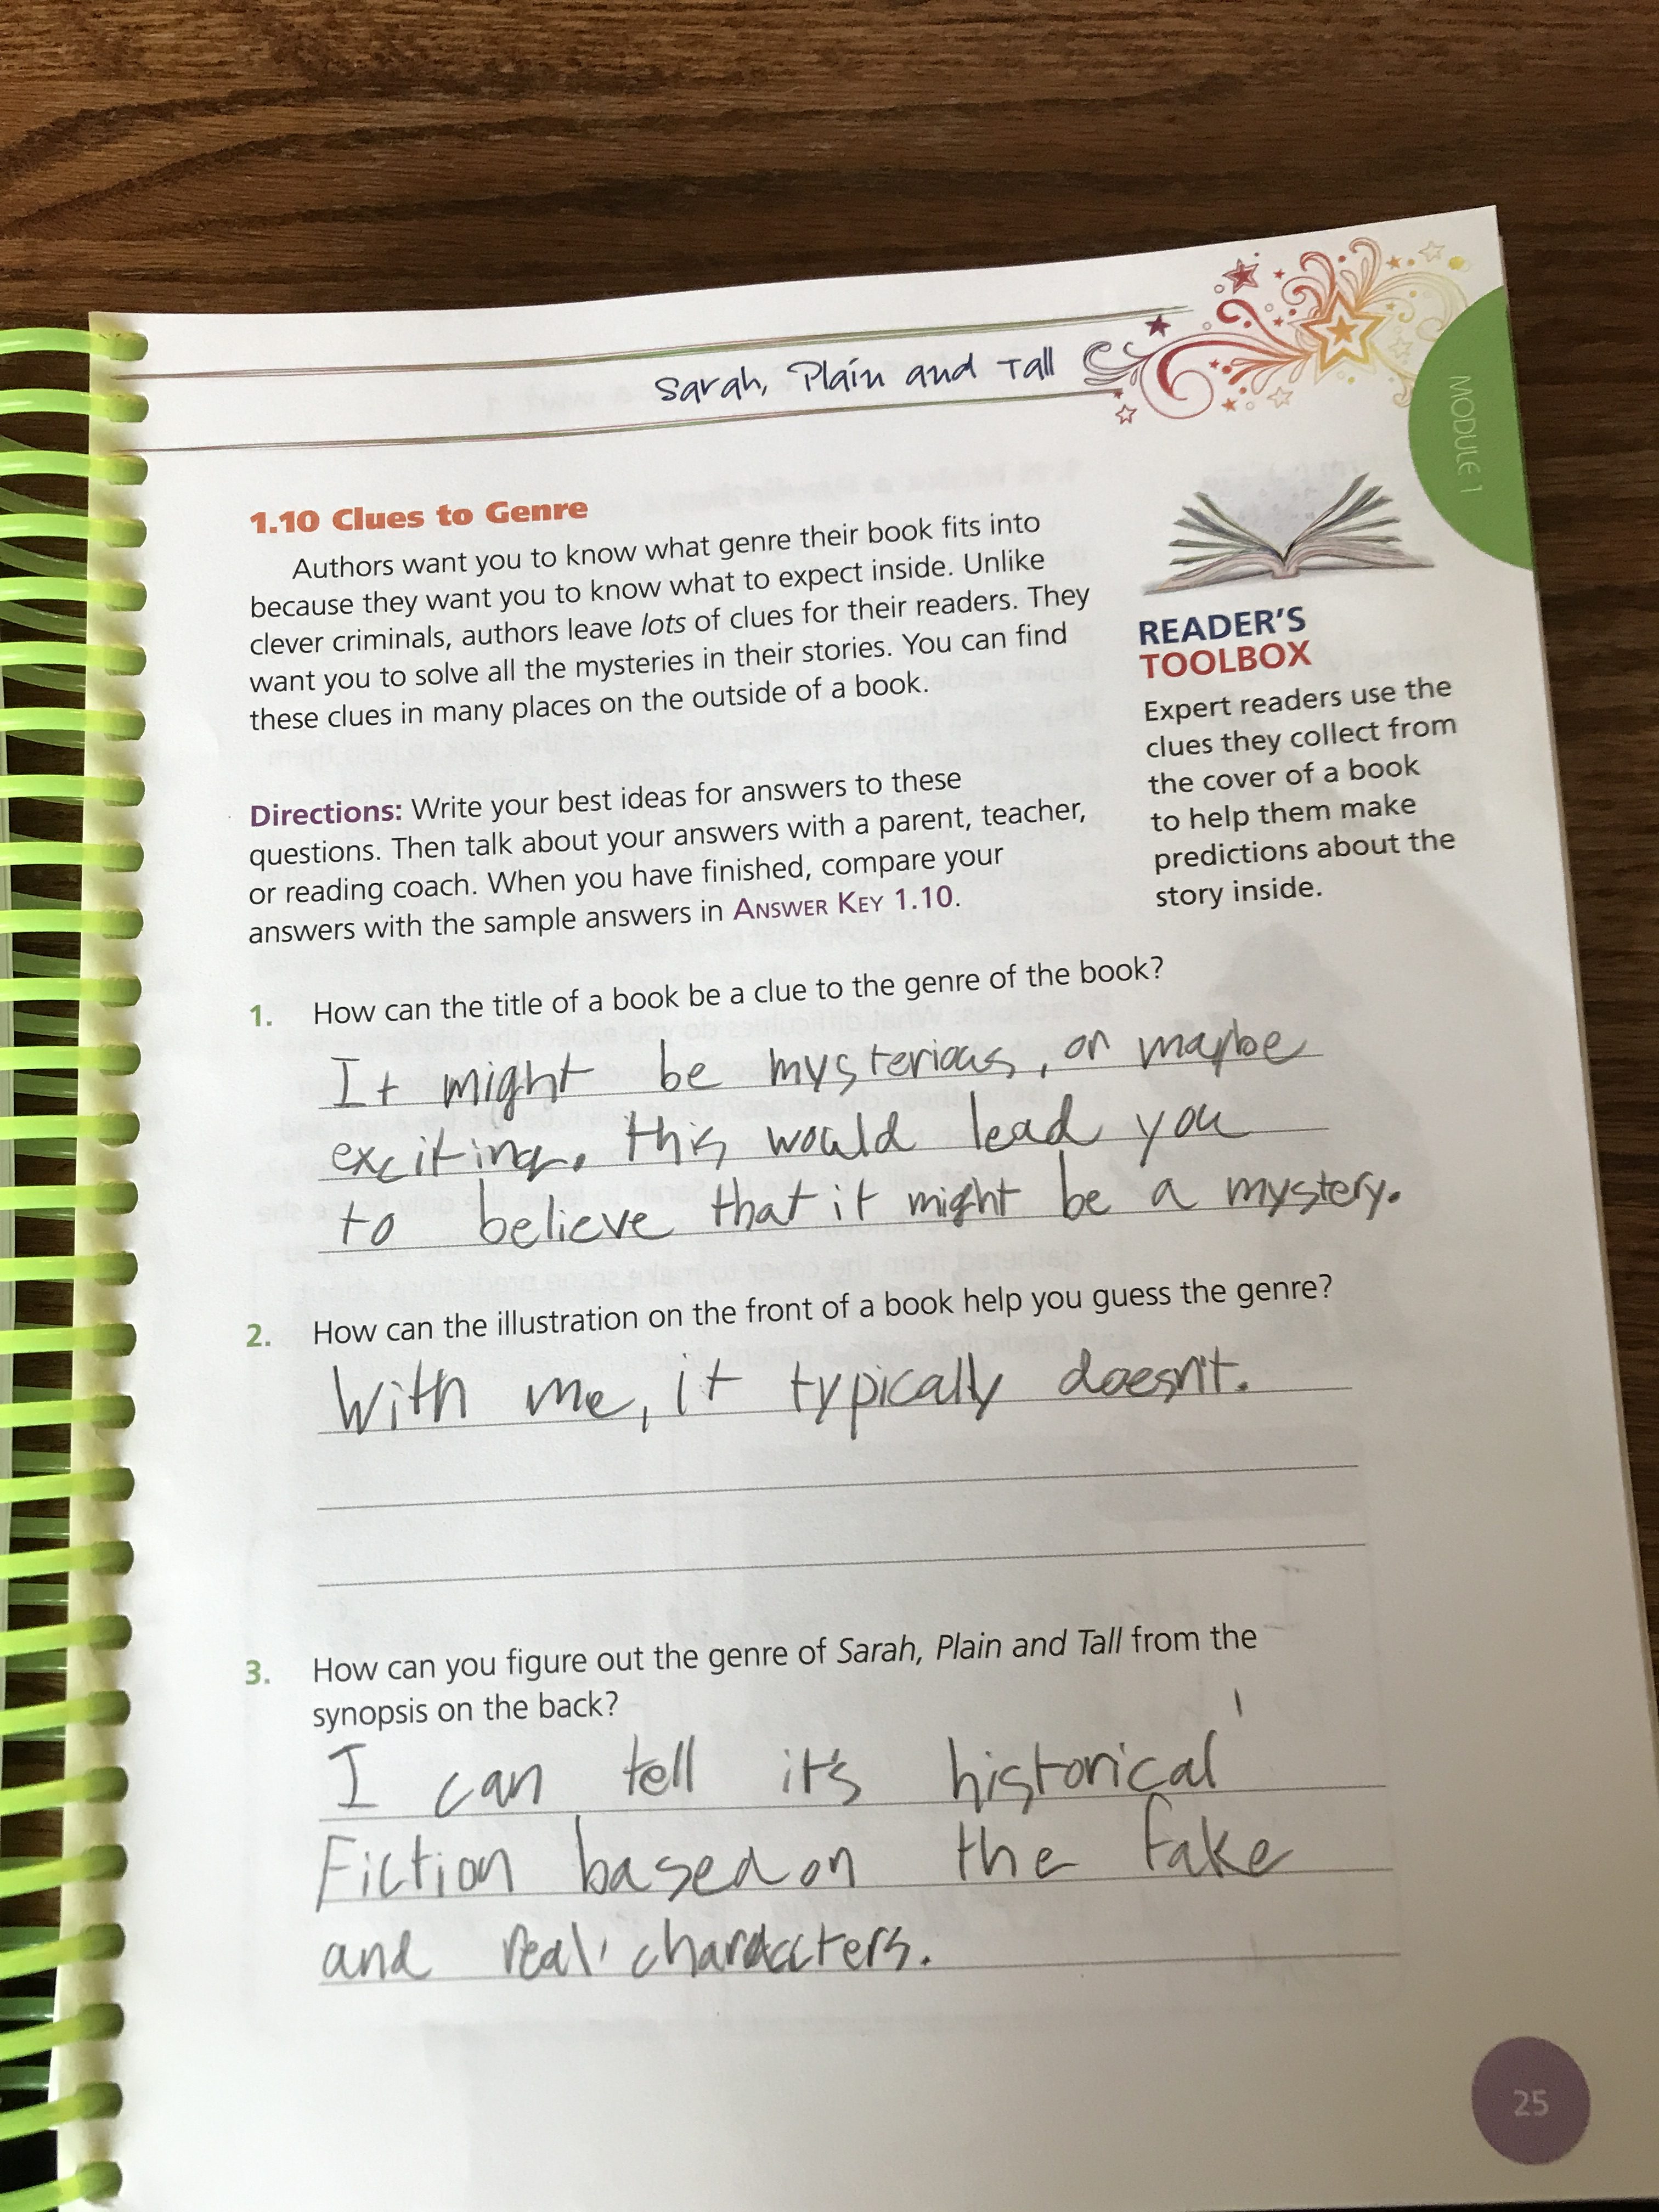 Sarah, Plain and Tall
MODULE 1
1.10 Clues to Genre
Authors want you to know what genre their book fits into
because they want you to know what to expect inside. Unlike
clever criminals, authors leave lots of clues for their readers. They
want you to solve all the mysteries in their stories. You can find
these clues in many places on the outside of a book.
READER'S
TOOLBOX
Expert readers use the
clues they collect from
the cover of a book
to help them make
predictions about the
story inside.
Directions: Write your best ideas for answers to these
questions. Then talk about your answers with a parent, teacher,
or reading coach. When you have finished, compare your
answers with the sample answers in ANSWER KEY 1.10.
1. How can the title of a book be a clue to the genre of the book?
It might be mysterious, or maybe
exciting. this would lead you
to believe that it might be a mystery.
2. How can the illustration on the front of a book help you guess the genre?
With me, it typically doesn't.
3. How can you figure out the genre of Sarah, Plain and Tall from the
synopsis on the back?
I can tell it's historical
Fiction based on the fake
and real characters.
25